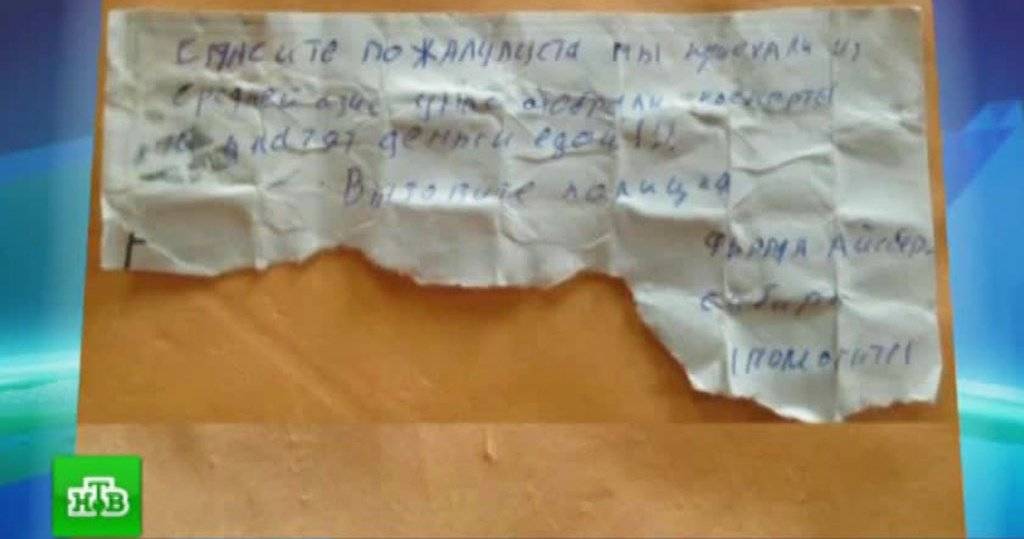 спасите пожалуйста мы приехали из
средней азие у нас отобрали паспорты
платят деньги едой!!!
Вызовите полиция
фирма
сибирь
!помогите!
НТВ